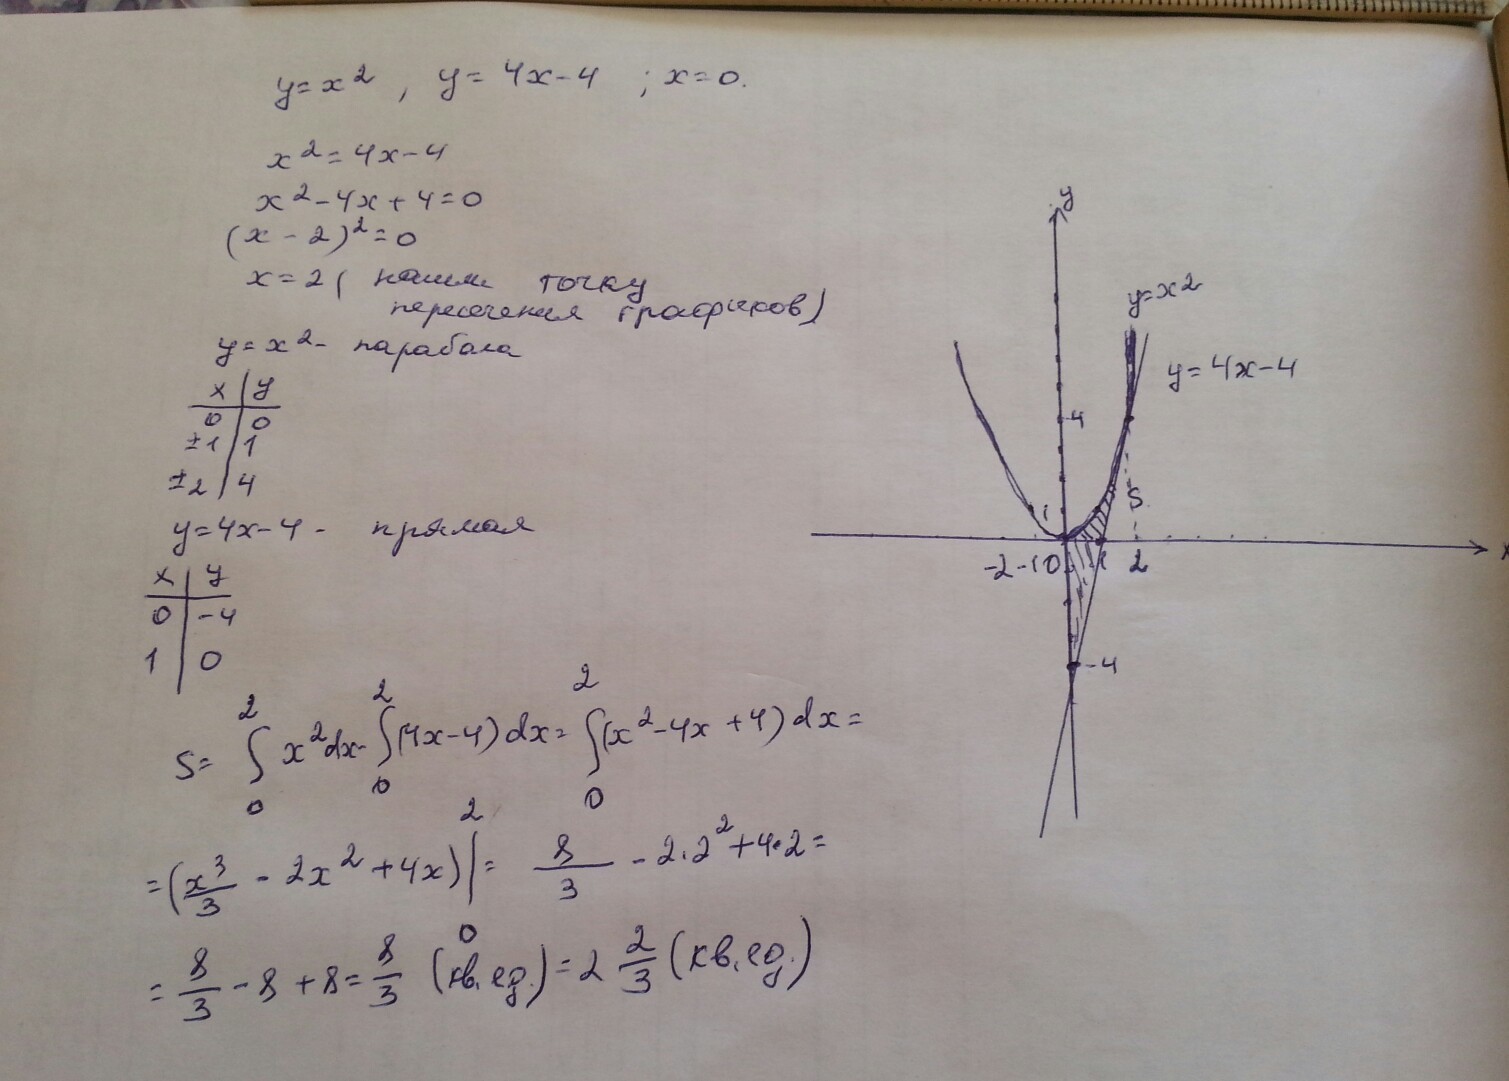 y=x², y=4x-4; x=0.
x²=4x-4
x²-4x+4=0
(x-2)²=0
x=2 ( нашли точку
пересечения графиков)
y=x² - парабола
x | y
0 | 0
±1 | 1
±2 | 4
y=4x-4 - прямая
x | y
0 | -4
1 | 0
S= ∫₀² x²dx - ∫₀² (4x-4)dx = ∫₀² (x²-4x+4)dx =
= (x³/3 - 2x² + 4x)|₀² = 8/3 - 2·2² + 4·2 =
= 8/3 - 8 + 8 = 8/3 (кв.ед.) = 2 2/3 (кв.ед.)
y
y=x²
y=4x-4
4
S
1
-2 -1 0 1 2 x
-4